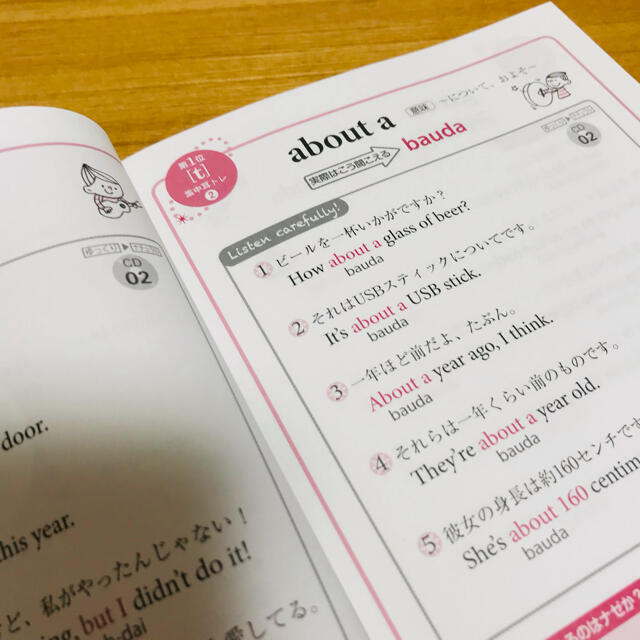 ゆっくり▶ナチュラル
CD
02
door.
his year.
ど、私がやったんじゃない!
ng, but I didn't do it!
愛してる。
第1位
[t]
集中耳トレ
❷
about a
意味 ~について、およそ~
実際はこう聞こえる
bauda
CD
02
Listen carefully!
1 ビールを一杯いかがですか?
How about a glass of beer?
bauda
2 それはUSBスティックについてです。
It's about a USB stick.
bauda
3 一年ほど前だよ、たぶん。
About a year ago, I think.
bauda
4 それらは一年くらい前のものです。
They're about a year old.
bauda
5 彼女の身長は約160センチです
She's about 160 centim
bauda
のはナゼか?